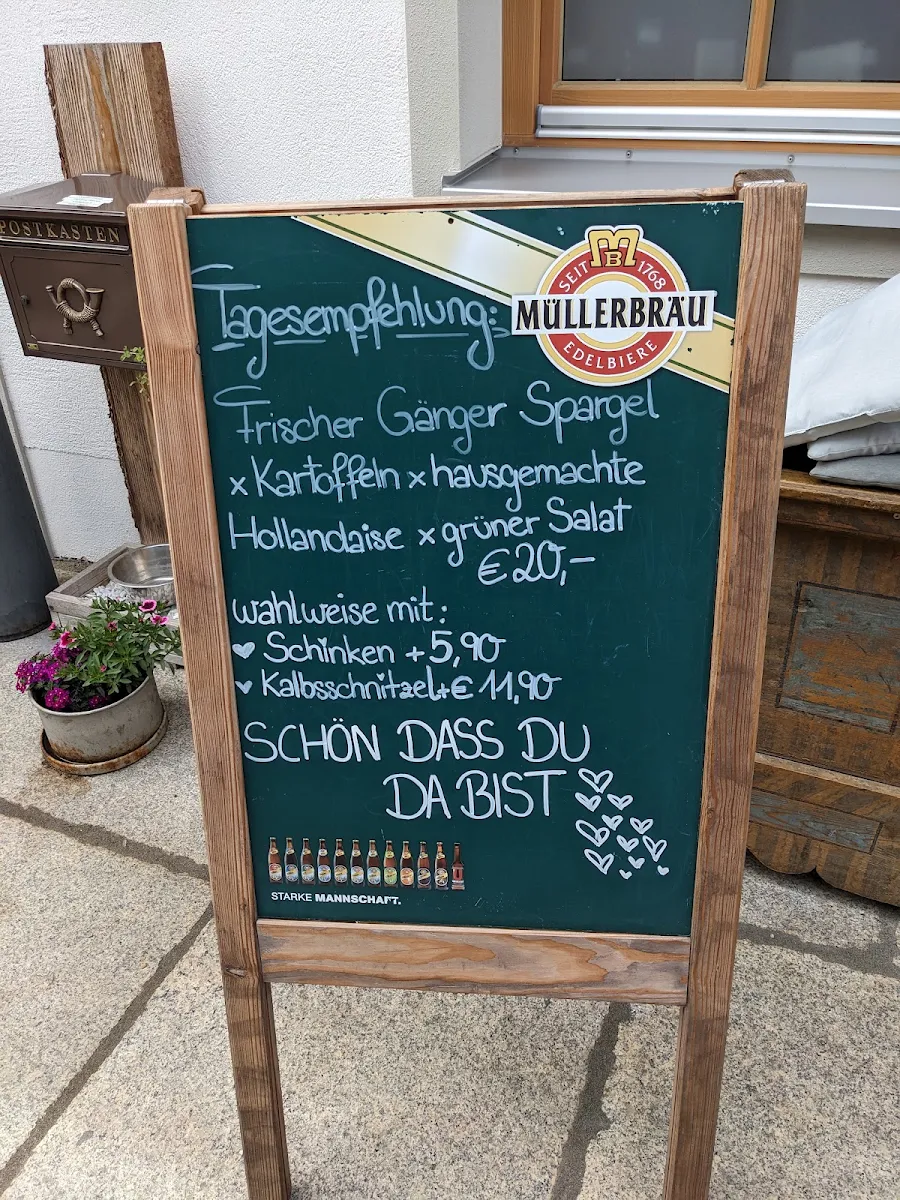 POSTKASTEN
SEIT 1768
MB
MÜLLERBRÄU
EDELBIERE
Tagesempfehlung:
Frischer Gänger Spargel
x Kartoffeln x hausgemachte
Hollandaise x grüner Salat
€ 20,-
wahlweise mit:
♥ Schinken + 5,90
♥ Kalbsschnitzel + € 11,90
SCHÖN DASS DU
DA BIST
STARKE MANNSCHAFT.